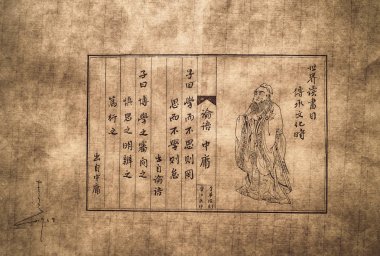 世界读書日
傳承文化時
論語 中庸
子曰學而不思則罔
思而不學則怠
出自論語
子曰博學之審問之
慎思之明辨之
篤行之
出自中庸